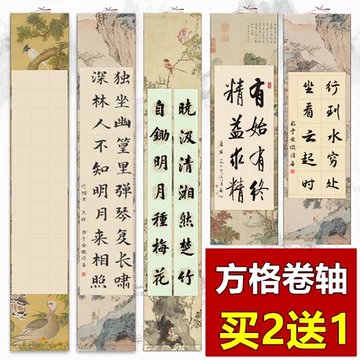 独坐幽篁里弹琴复长啸
深林人不知明月来相照
曉汲清湘然楚竹
自鋤明月種梅花
有始有终
精益求精
行到水穷处
坐看云起时
方格卷轴
买2送1